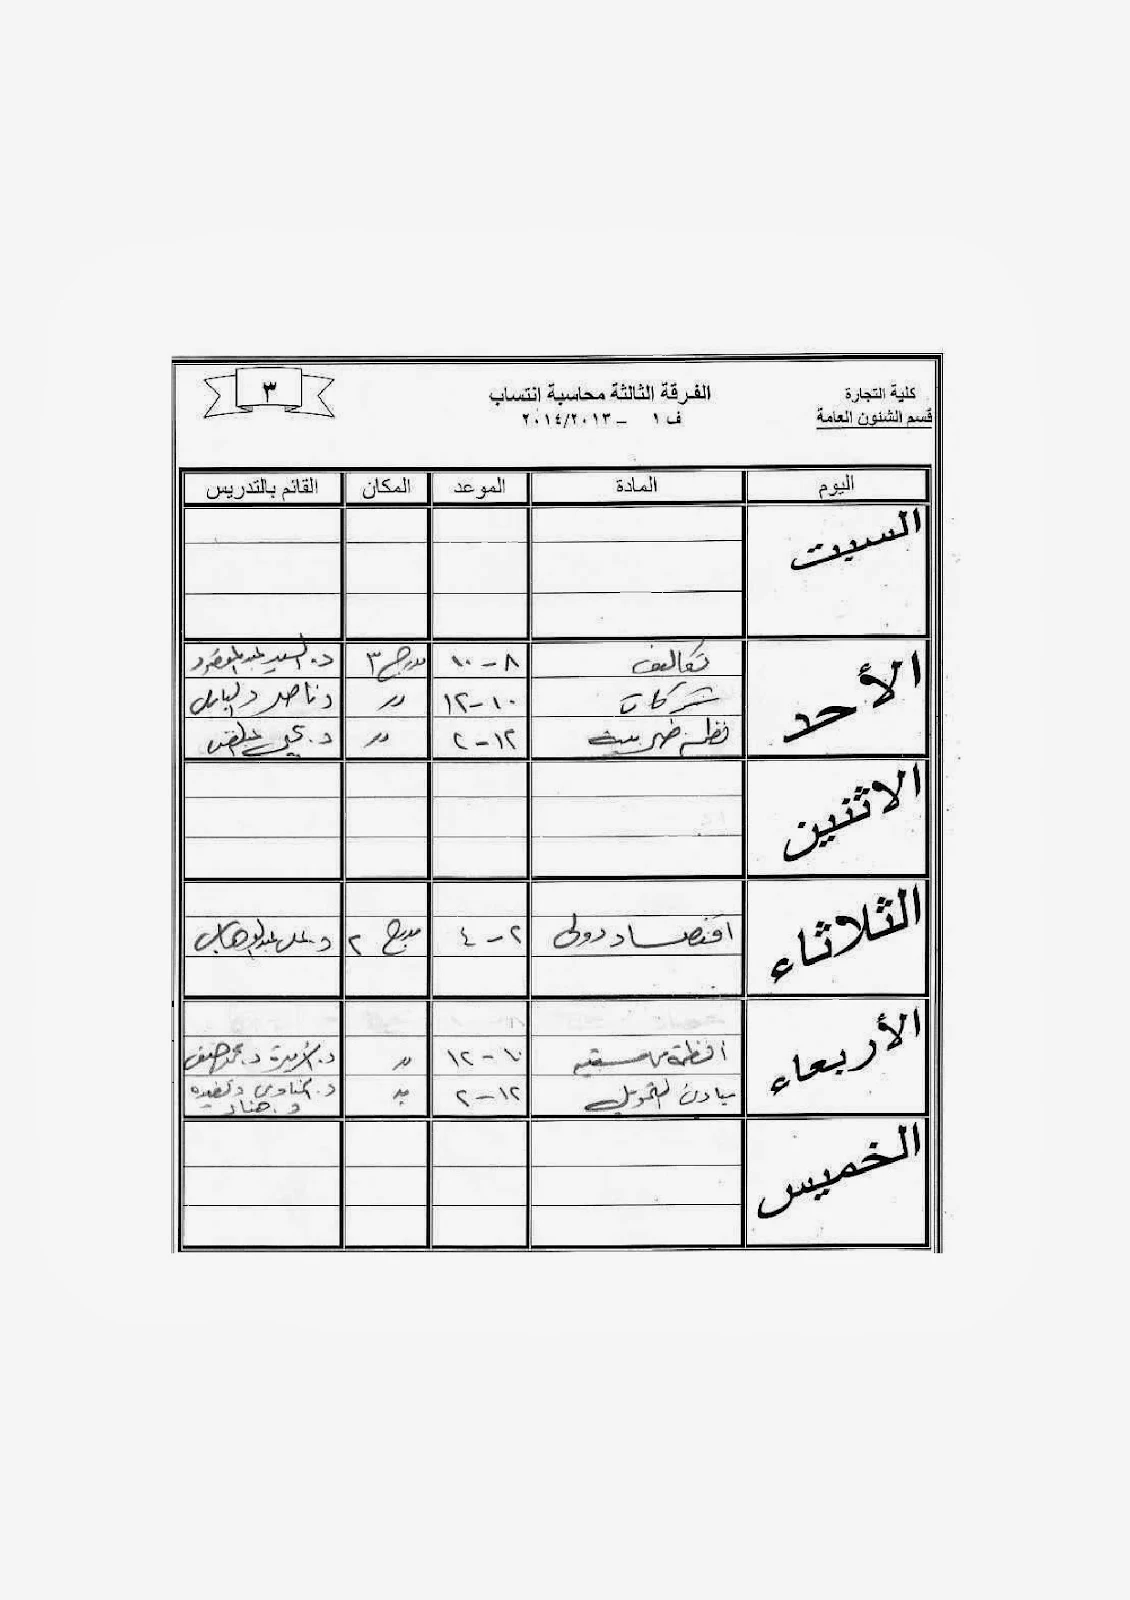 كلية التجارة
قسم الشئون العامة
الفرقة الثالثة محاسبة انتساب
ف ١ – ٢٠١٤/٢٠١٣
٣
اليوم المادة الموعد المكان القائم بالتدريس
السبت
الأحد
تكاليف ٨-١٠ مدرج ٣ د. السيد عبد المقصود
شركات ١٠-١٢ " د ناصر د
نظم ضريبية ١٢-٢ " د.
الاثنين
الثلاثاء
اقتصاد دولى ٢-٤ مدرج ٢ د. على عبد الوهاب
الأربعاء
أنظمة محاسبية ١٠-١٢ " د. أميرة د. محمد
مبادئ التمويل ١٢-٢ " د.
د. هناء
الخميس